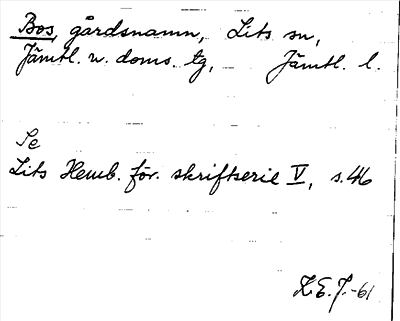 Bos, gårdsnamn, Lits sn,
Jämtl. v. doms. tg, Jämtl. l.
Se
Lits Hemb. för. skriftserie V, s. 46
K.E.J.-61